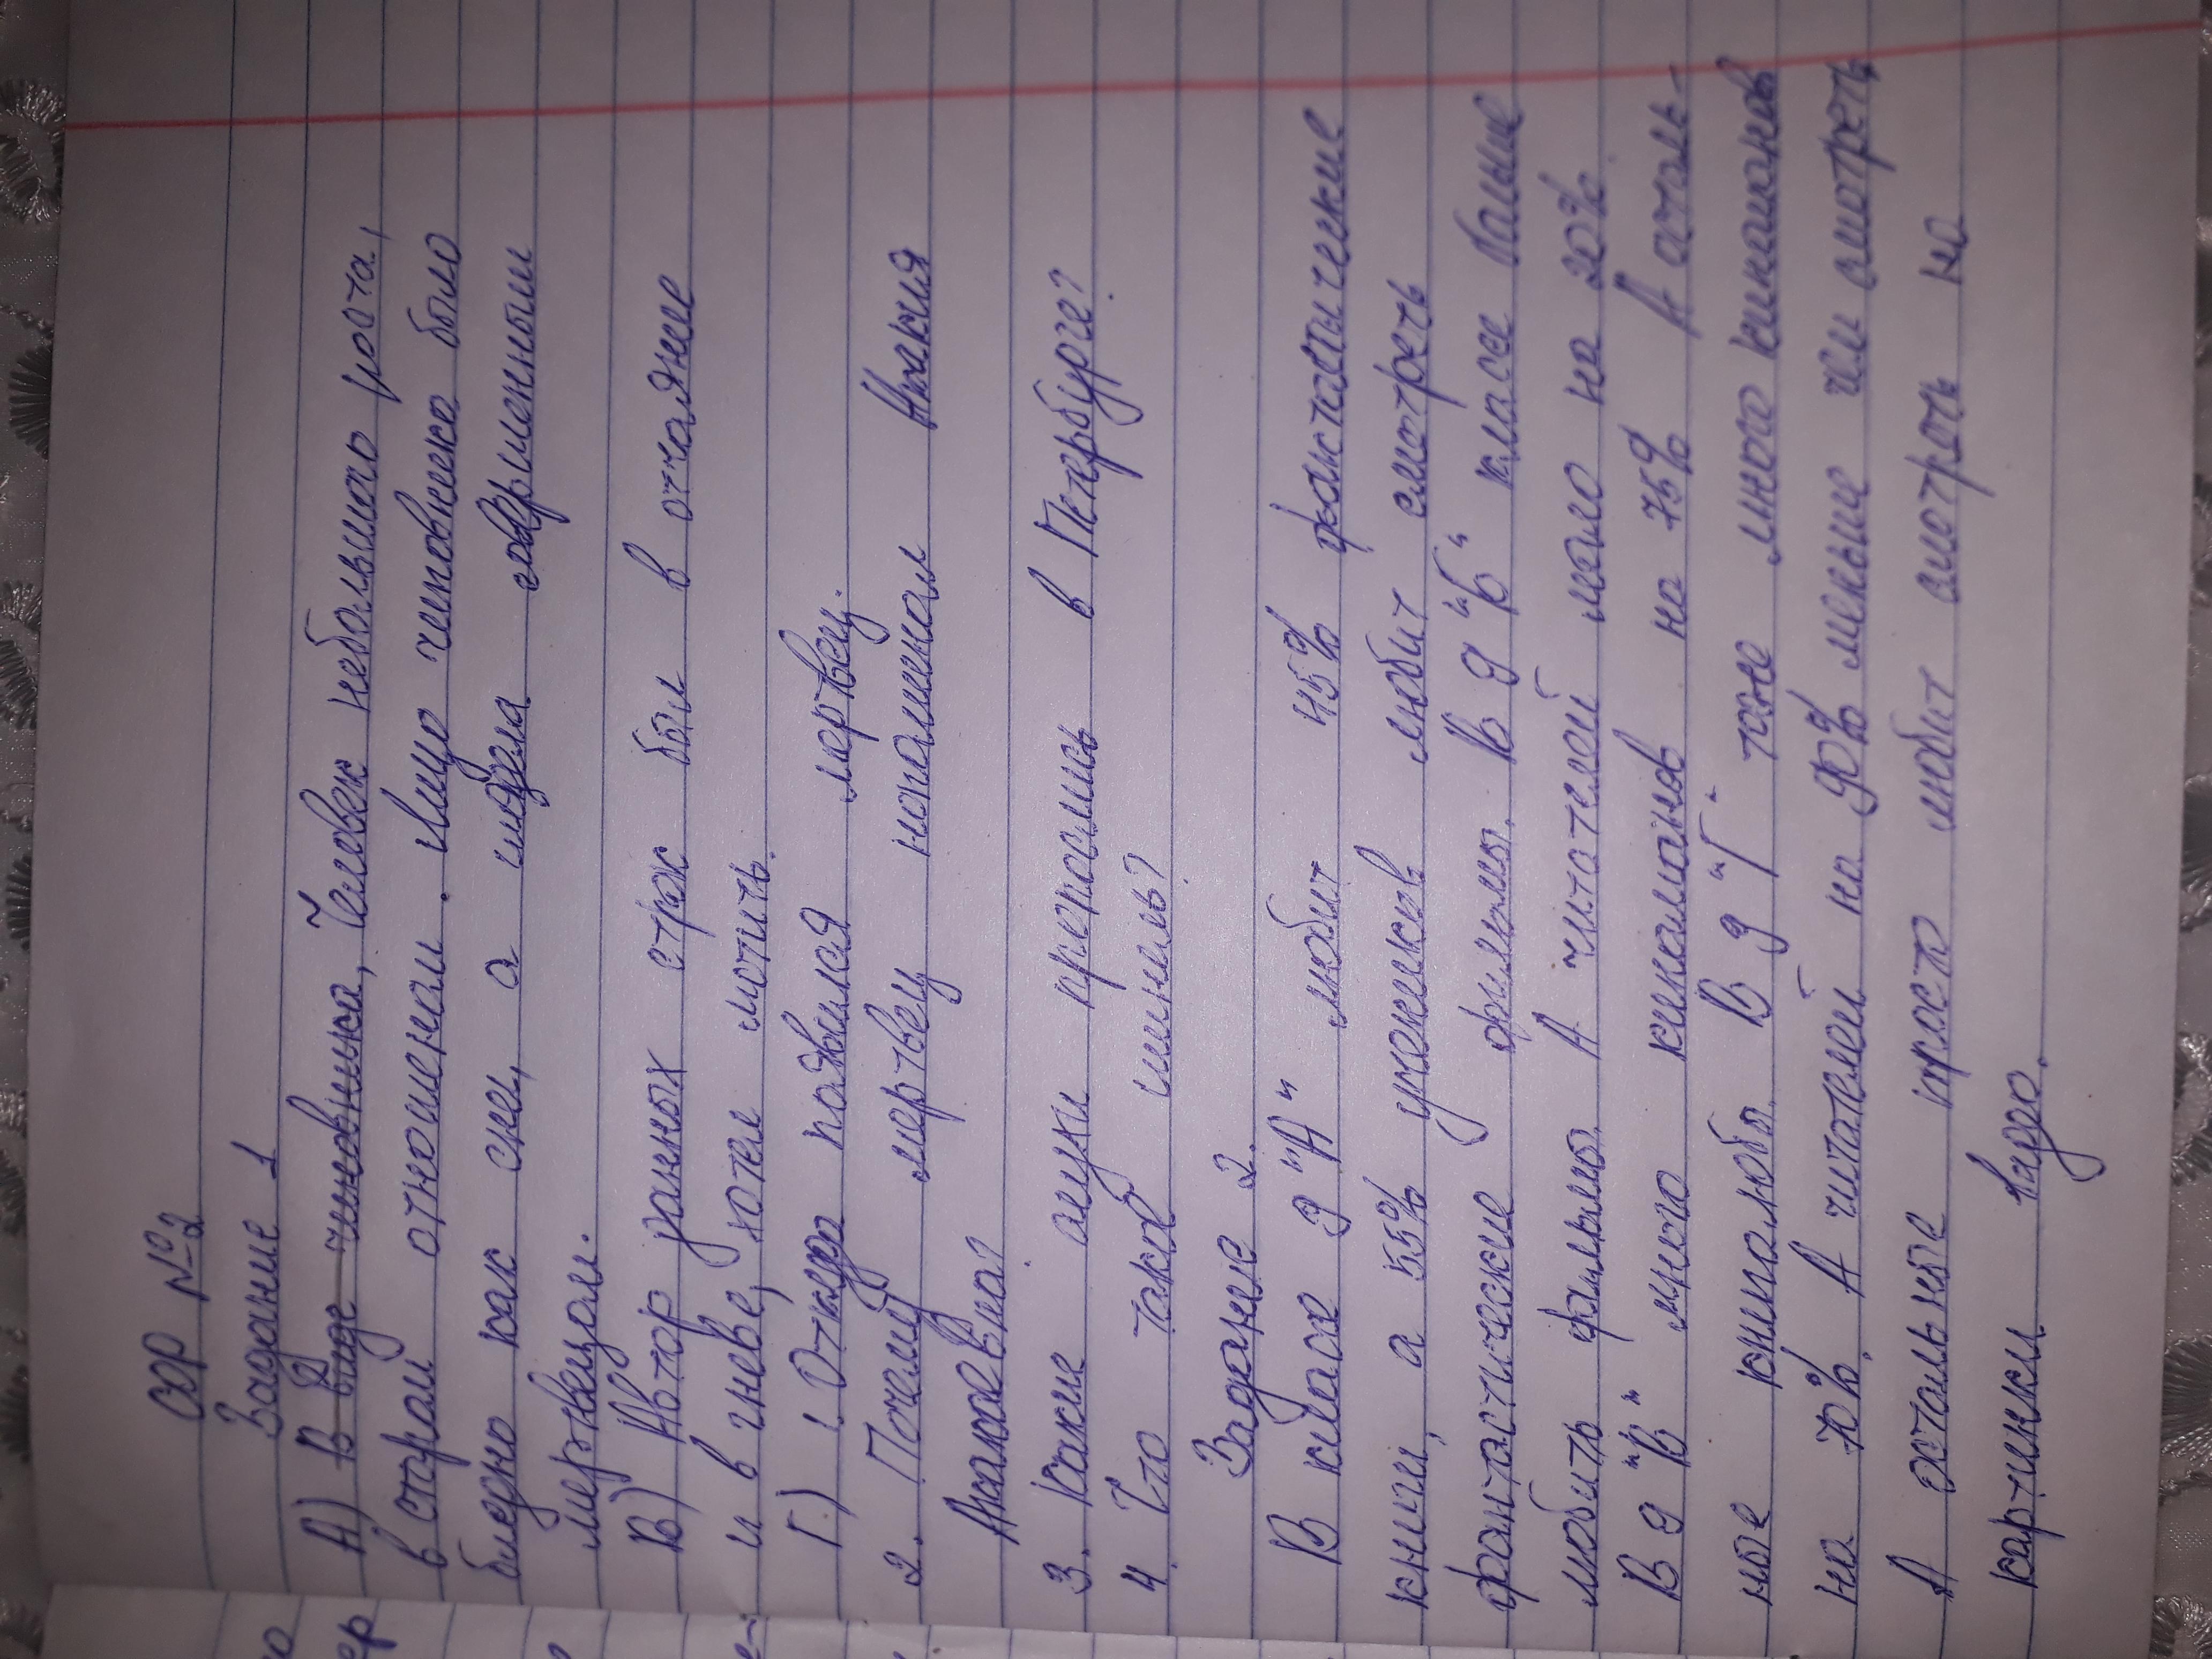 СОР №2
Задание 1
А) В виде чиновника, Человек небольшого роста,
в старом отношеном. Лицо чиновника было
бледно как снег, а глядела совершенным
мертвецом.
В) Автор данных строк был в отчаяние
и в гневе, хотел мстить.
Г) 1. Откуда появился мертвец.
2. Почему мертвец напоминал Акакия
Акакаевича?
3. Какие слухи пронеслись в Петербурге?
4. Что такое шинель?
Задание 2.
В класса 9 "А" любит 45% фантастические
книги, а 55% учеников любит смотреть
фантастические фильмы. В 9 "Б" классе больше
любить фильмы. А читателей мало на 20%.
В 9 "В" много киноманов на 75% А осталь-
ные книголюбы. В 9 "Г" тоже много киноманов
на 70%. А читателей на 90% меньше чем смотреть
А остальные просто любит смотреть на
картинки кадра.
ер
е-